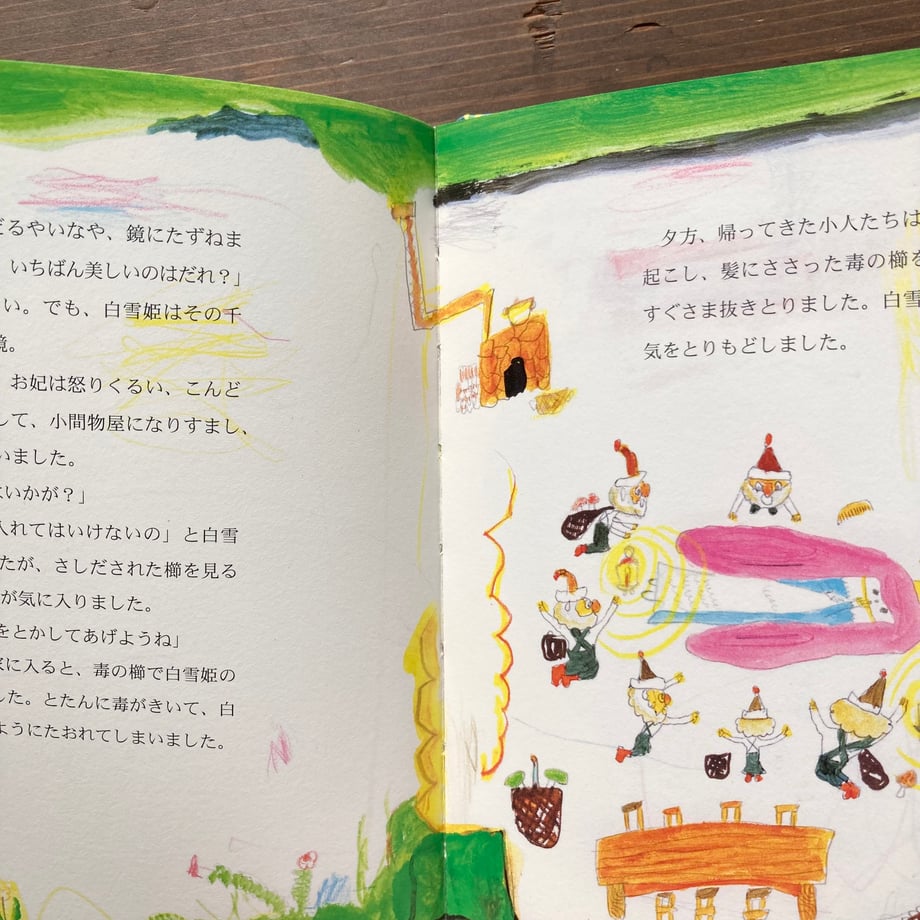 どるやいなや、鏡にたずねま
いちばん美しいのはだれ？」
い。でも、白雪姫はその千
鏡。
お妃は怒りくるい、こんど
して、小間物屋になりすまし、
いました。
いかが？」
入れてはいけないの」と白雪
たが、さしだされた櫛を見る
が気に入りました。
をとかしてあげようね」
家に入ると、毒の櫛で白雪姫の
した。とたんに毒がきいて、白
ようにたおれてしまいました。
夕方、帰ってきた小人たちは
起こし、髪にささった毒の櫛を
すぐさま抜きとりました。白雪
気をとりもどしました。